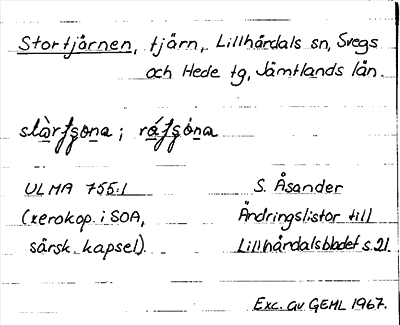 Stortjärnen, tjärn, Lillhärdals sn, Svegs
och Hede tg, Jämtlands län.
ULMA 755:1 S. Åsander
(xerokop. i SOA, Ändringslistor till
särsk. kapsel). Lillhärdalsbladet s. 21.
Exc. av GEHL 1967.